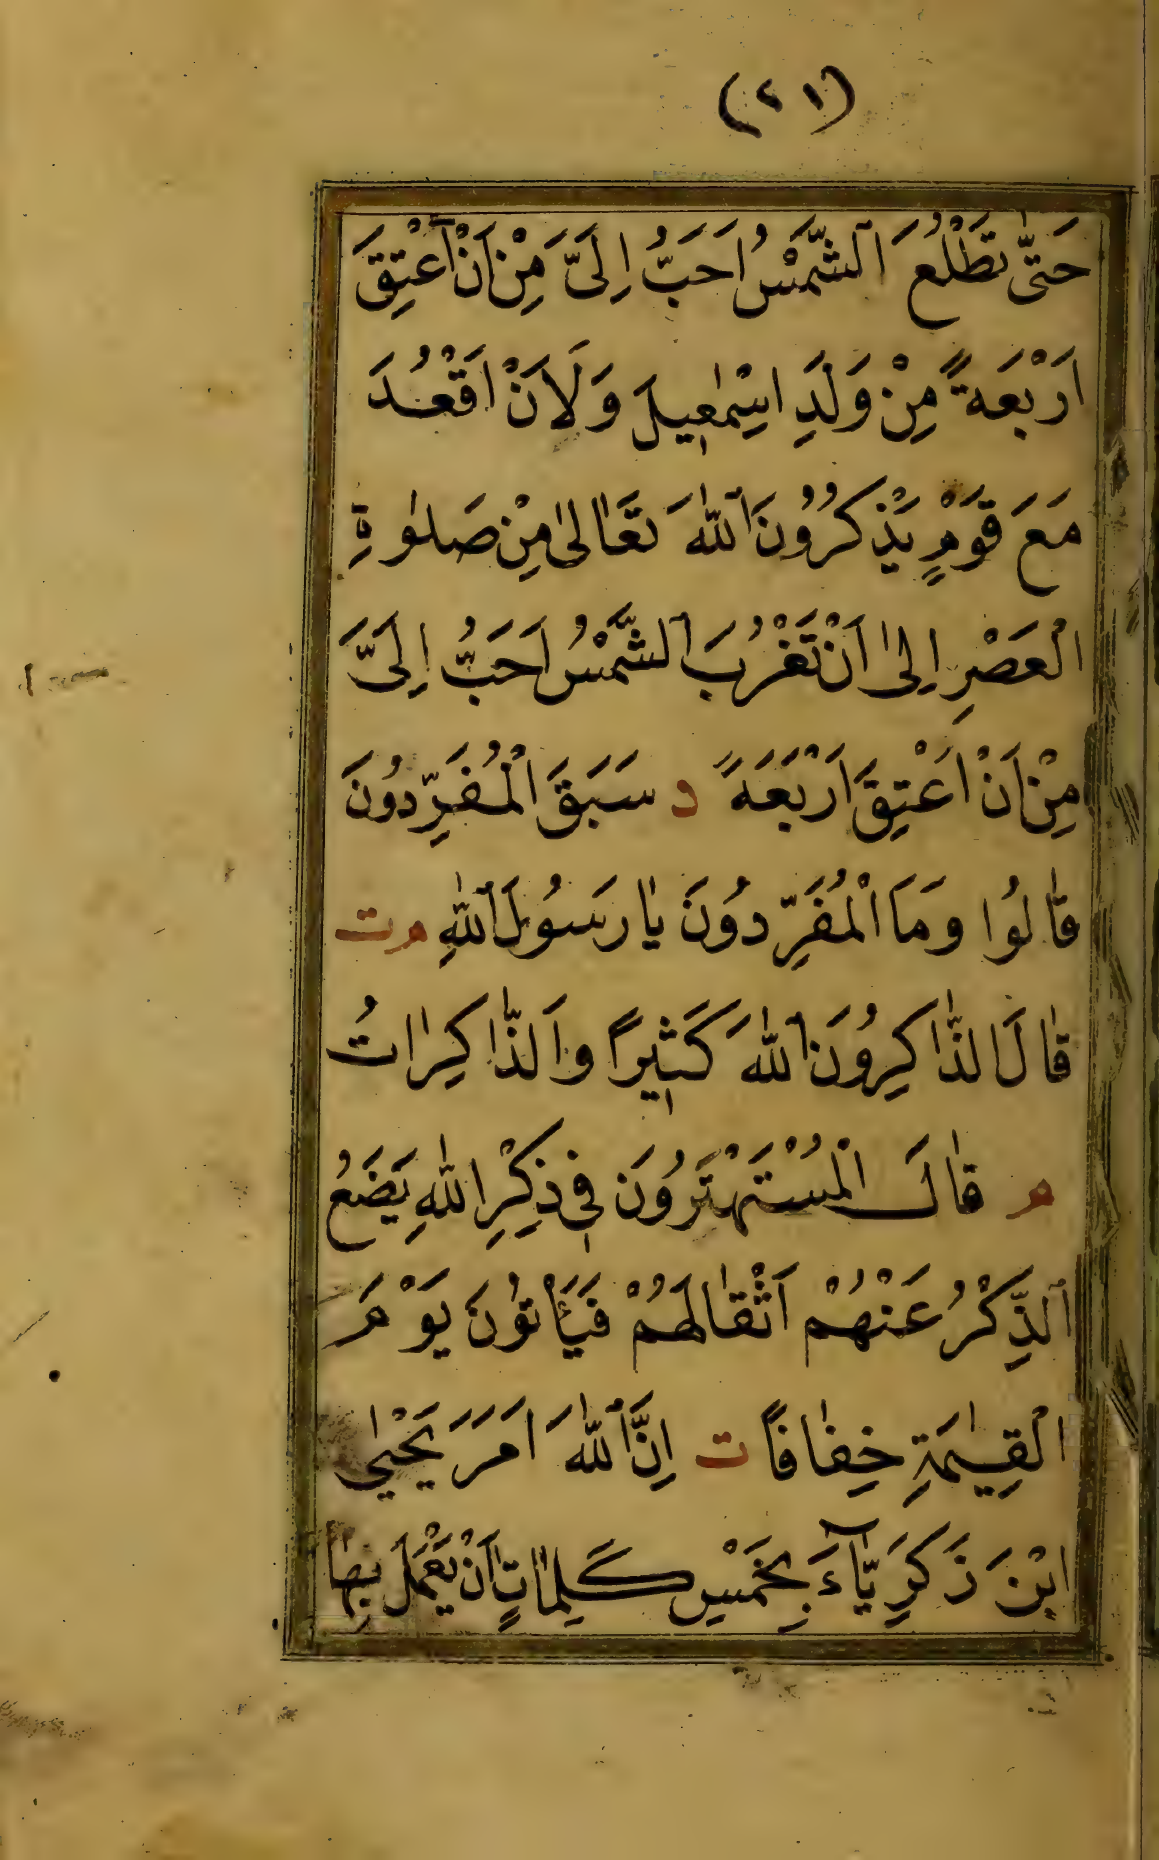 (٢١)
حَتّٰى تَطْلُعَ اَلشَّمْسُ اَحَبُّ اِلَىَّ مِنْ اَنْ اَعْتِقَ
اَرْبَعَةً مِنْ وَلَدِ اِسْمٰعِيلَ وَلَاَنْ اَقْعُدَ
مَعَ قَوْمٍ يَذْكُرُونَ اللّٰهَ تَعَالٰى مِنْ صَلٰوةِ
الْعَصْرِ اِلٰى اَنْ تَغْرُبَ الشَّمْسُ اَحَبُّ اِلَىَّ
مِنْ اَنْ اَعْتِقَ اَرْبَعَةً د سَبَقَ الْمُفَرِّدُونَ
قَالُوا وَمَا الْمُفَرِّدُونَ يَا رَسُولَ اللّٰهِ م ت
قَالَ الذَّاكِرُونَ اللّٰهَ كَثِيرًا وَالذَّاكِرَاتُ
م قَالَ الْمُسْتَهْتَرُونَ فِى ذِكْرِ اللّٰهِ يَضَعُ
اَلذِّكْرُ عَنْهُمْ اَثْقَالَهُمْ فَيَأْتُونَ يَوْمَ
الْقِيٰمَةِ خِفَافًا ت اِنَّ اللّٰهَ اَمَرَ يَحْيٰى
ابْنَ زَكَرِيَّاءَ بِخَمْسِ كَلِمَاتٍ اَنْ يَعْمَلَ بِهَا